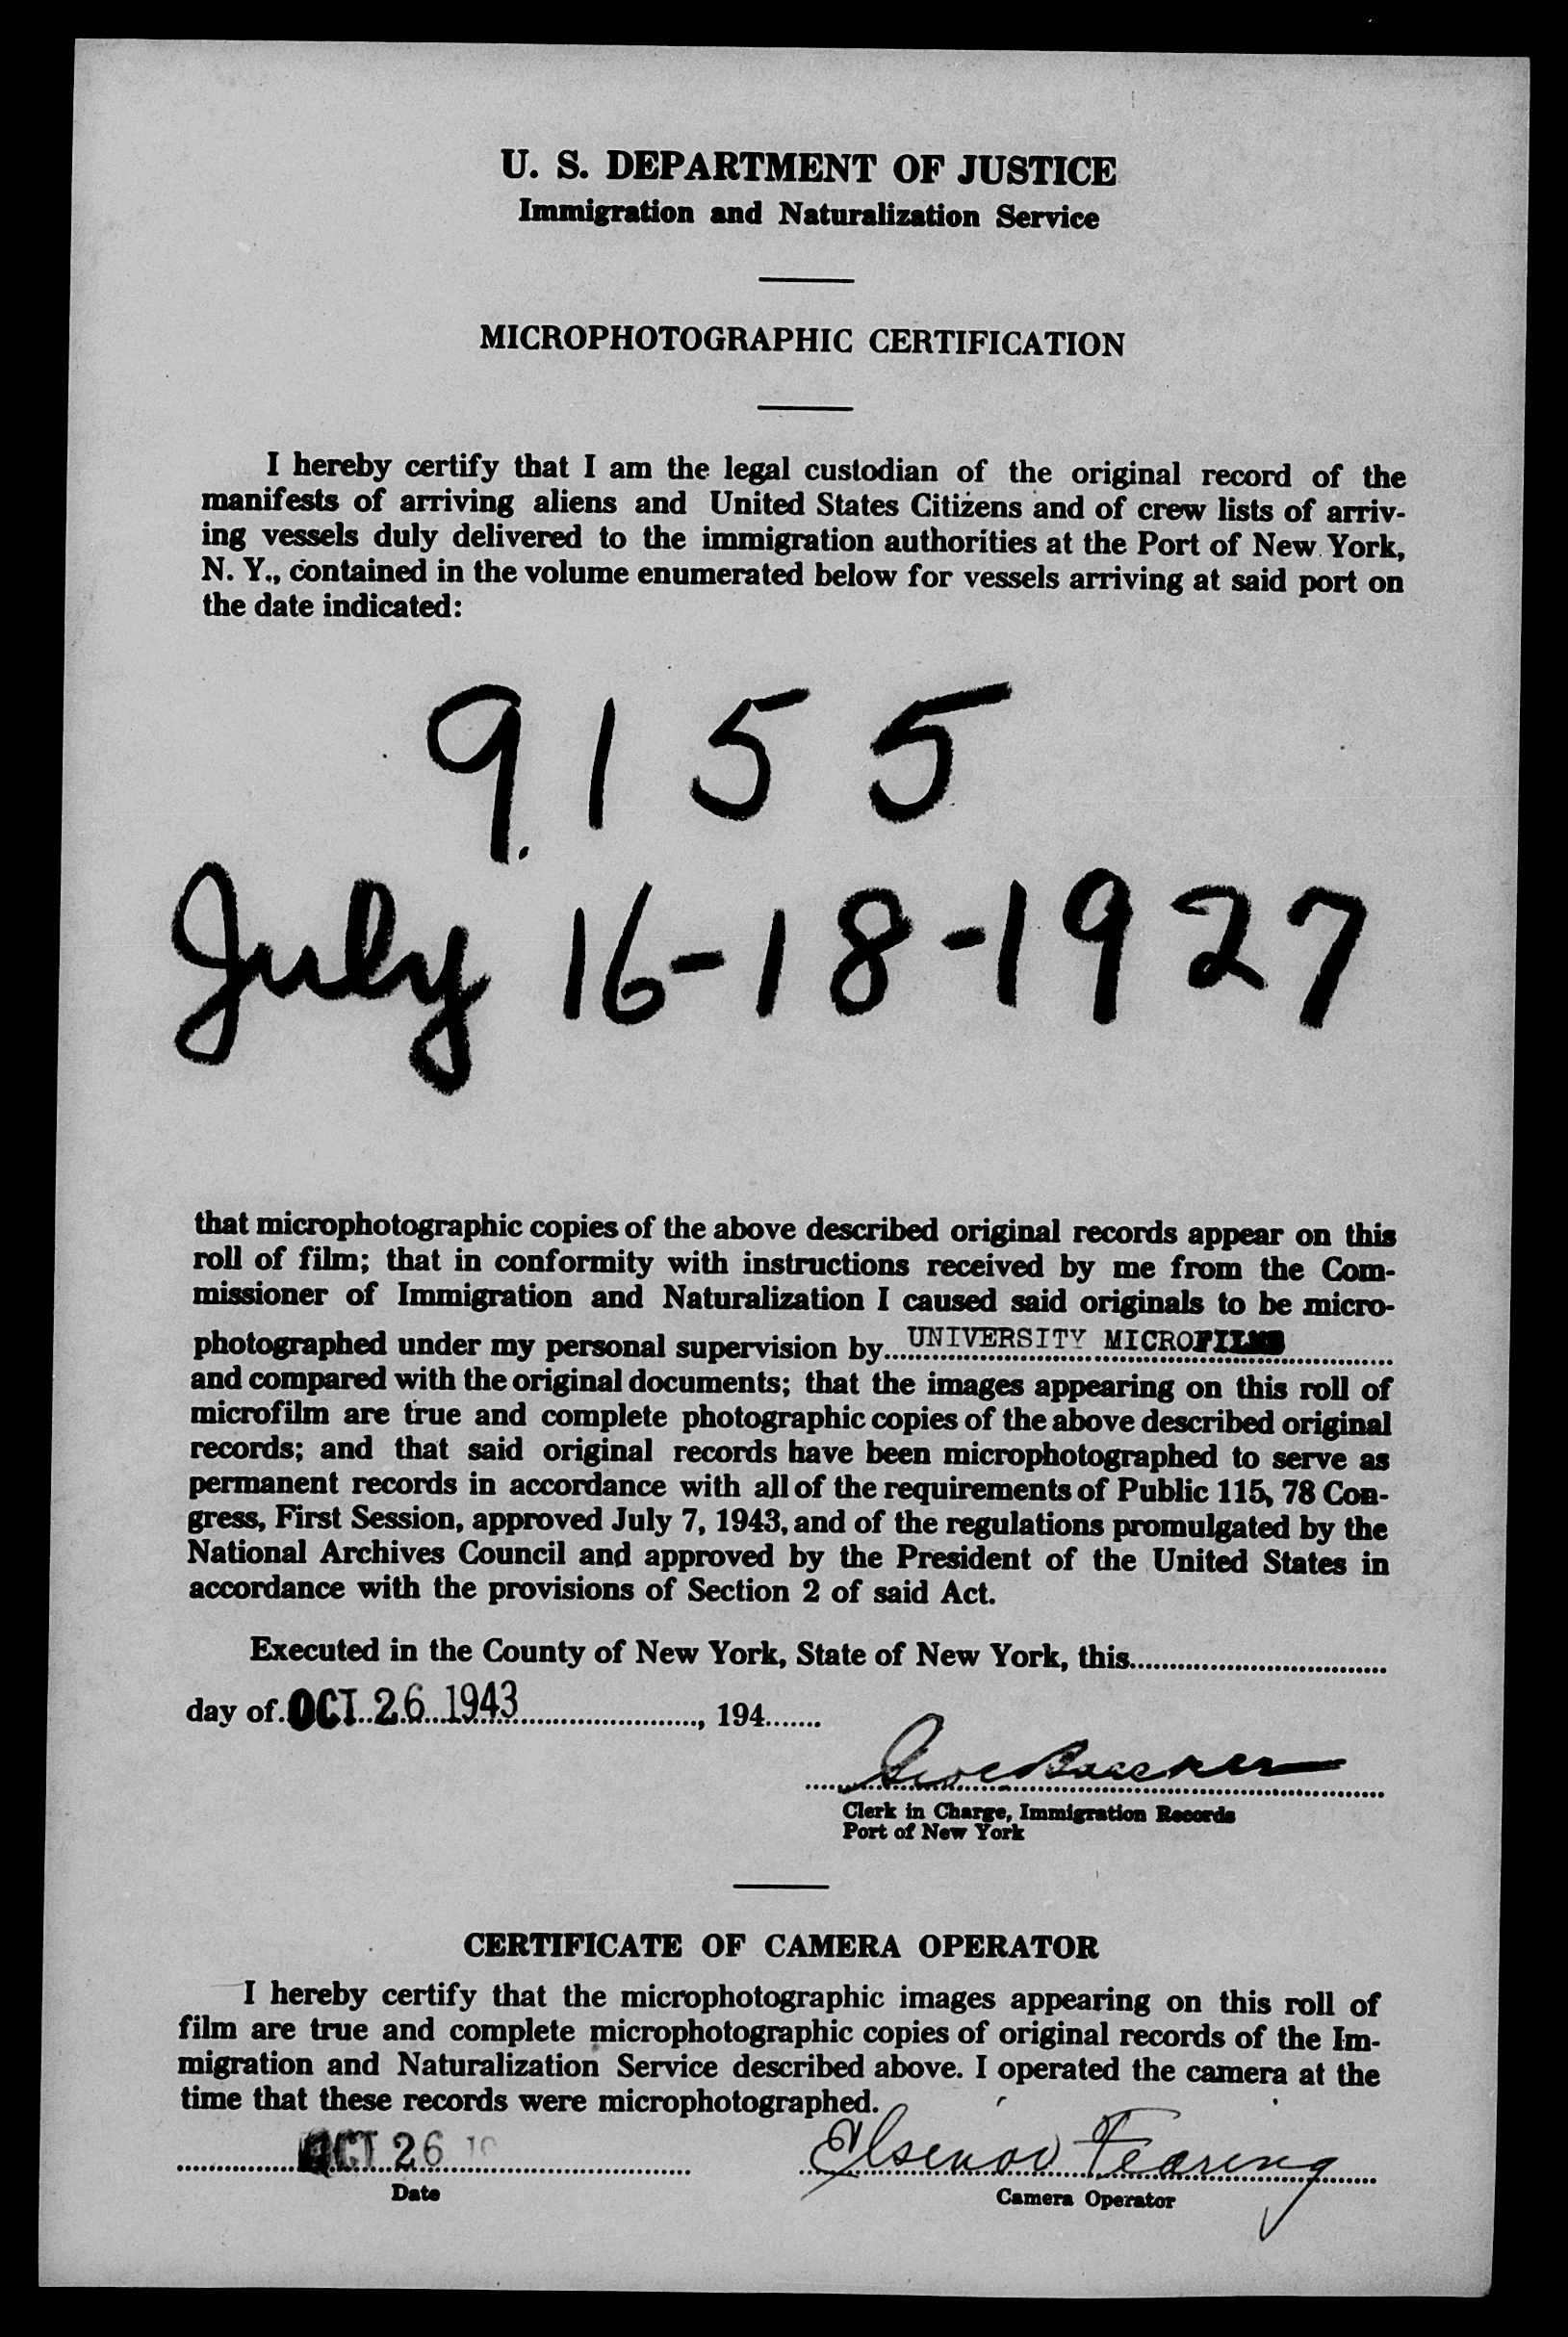 U. S. DEPARTMENT OF JUSTICE
Immigration and Naturalization Service
MICROPHOTOGRAPHIC CERTIFICATION
I hereby certify that I am the legal custodian of the original record of the
manifests of arriving aliens and United States Citizens and of crew lists of arriv-
ing vessels duly delivered to the immigration authorities at the Port of New York,
N. Y., contained in the volume enumerated below for vessels arriving at said port on
the date indicated:
9155
July 16-18-1927
that microphotographic copies of the above described original records appear on this
roll of film; that in conformity with instructions received by me from the Com-
missioner of Immigration and Naturalization I caused said originals to be micro-
photographed under my personal supervision by UNIVERSITY MICROFILMS
and compared with the original documents; that the images appearing on this roll of
microfilm are true and complete photographic copies of the above described original
records; and that said original records have been microphotographed to serve as
permanent records in accordance with all of the requirements of Public 115, 78 Con-
gress, First Session, approved July 7, 1943, and of the regulations promulgated by the
National Archives Council and approved by the President of the United States in
accordance with the provisions of Section 2 of said Act.
Executed in the County of New York, State of New York, this
day of OCT 26 1943, 194
Clerk in Charge, Immigration Records
Port of New York
CERTIFICATE OF CAMERA OPERATOR
I hereby certify that the microphotographic images appearing on this roll of
film are true and complete microphotographic copies of original records of the Im-
migration and Naturalization Service described above. I operated the camera at the
time that these records were microphotographed.
OCT 26
Fearing
Date
Camera Operator